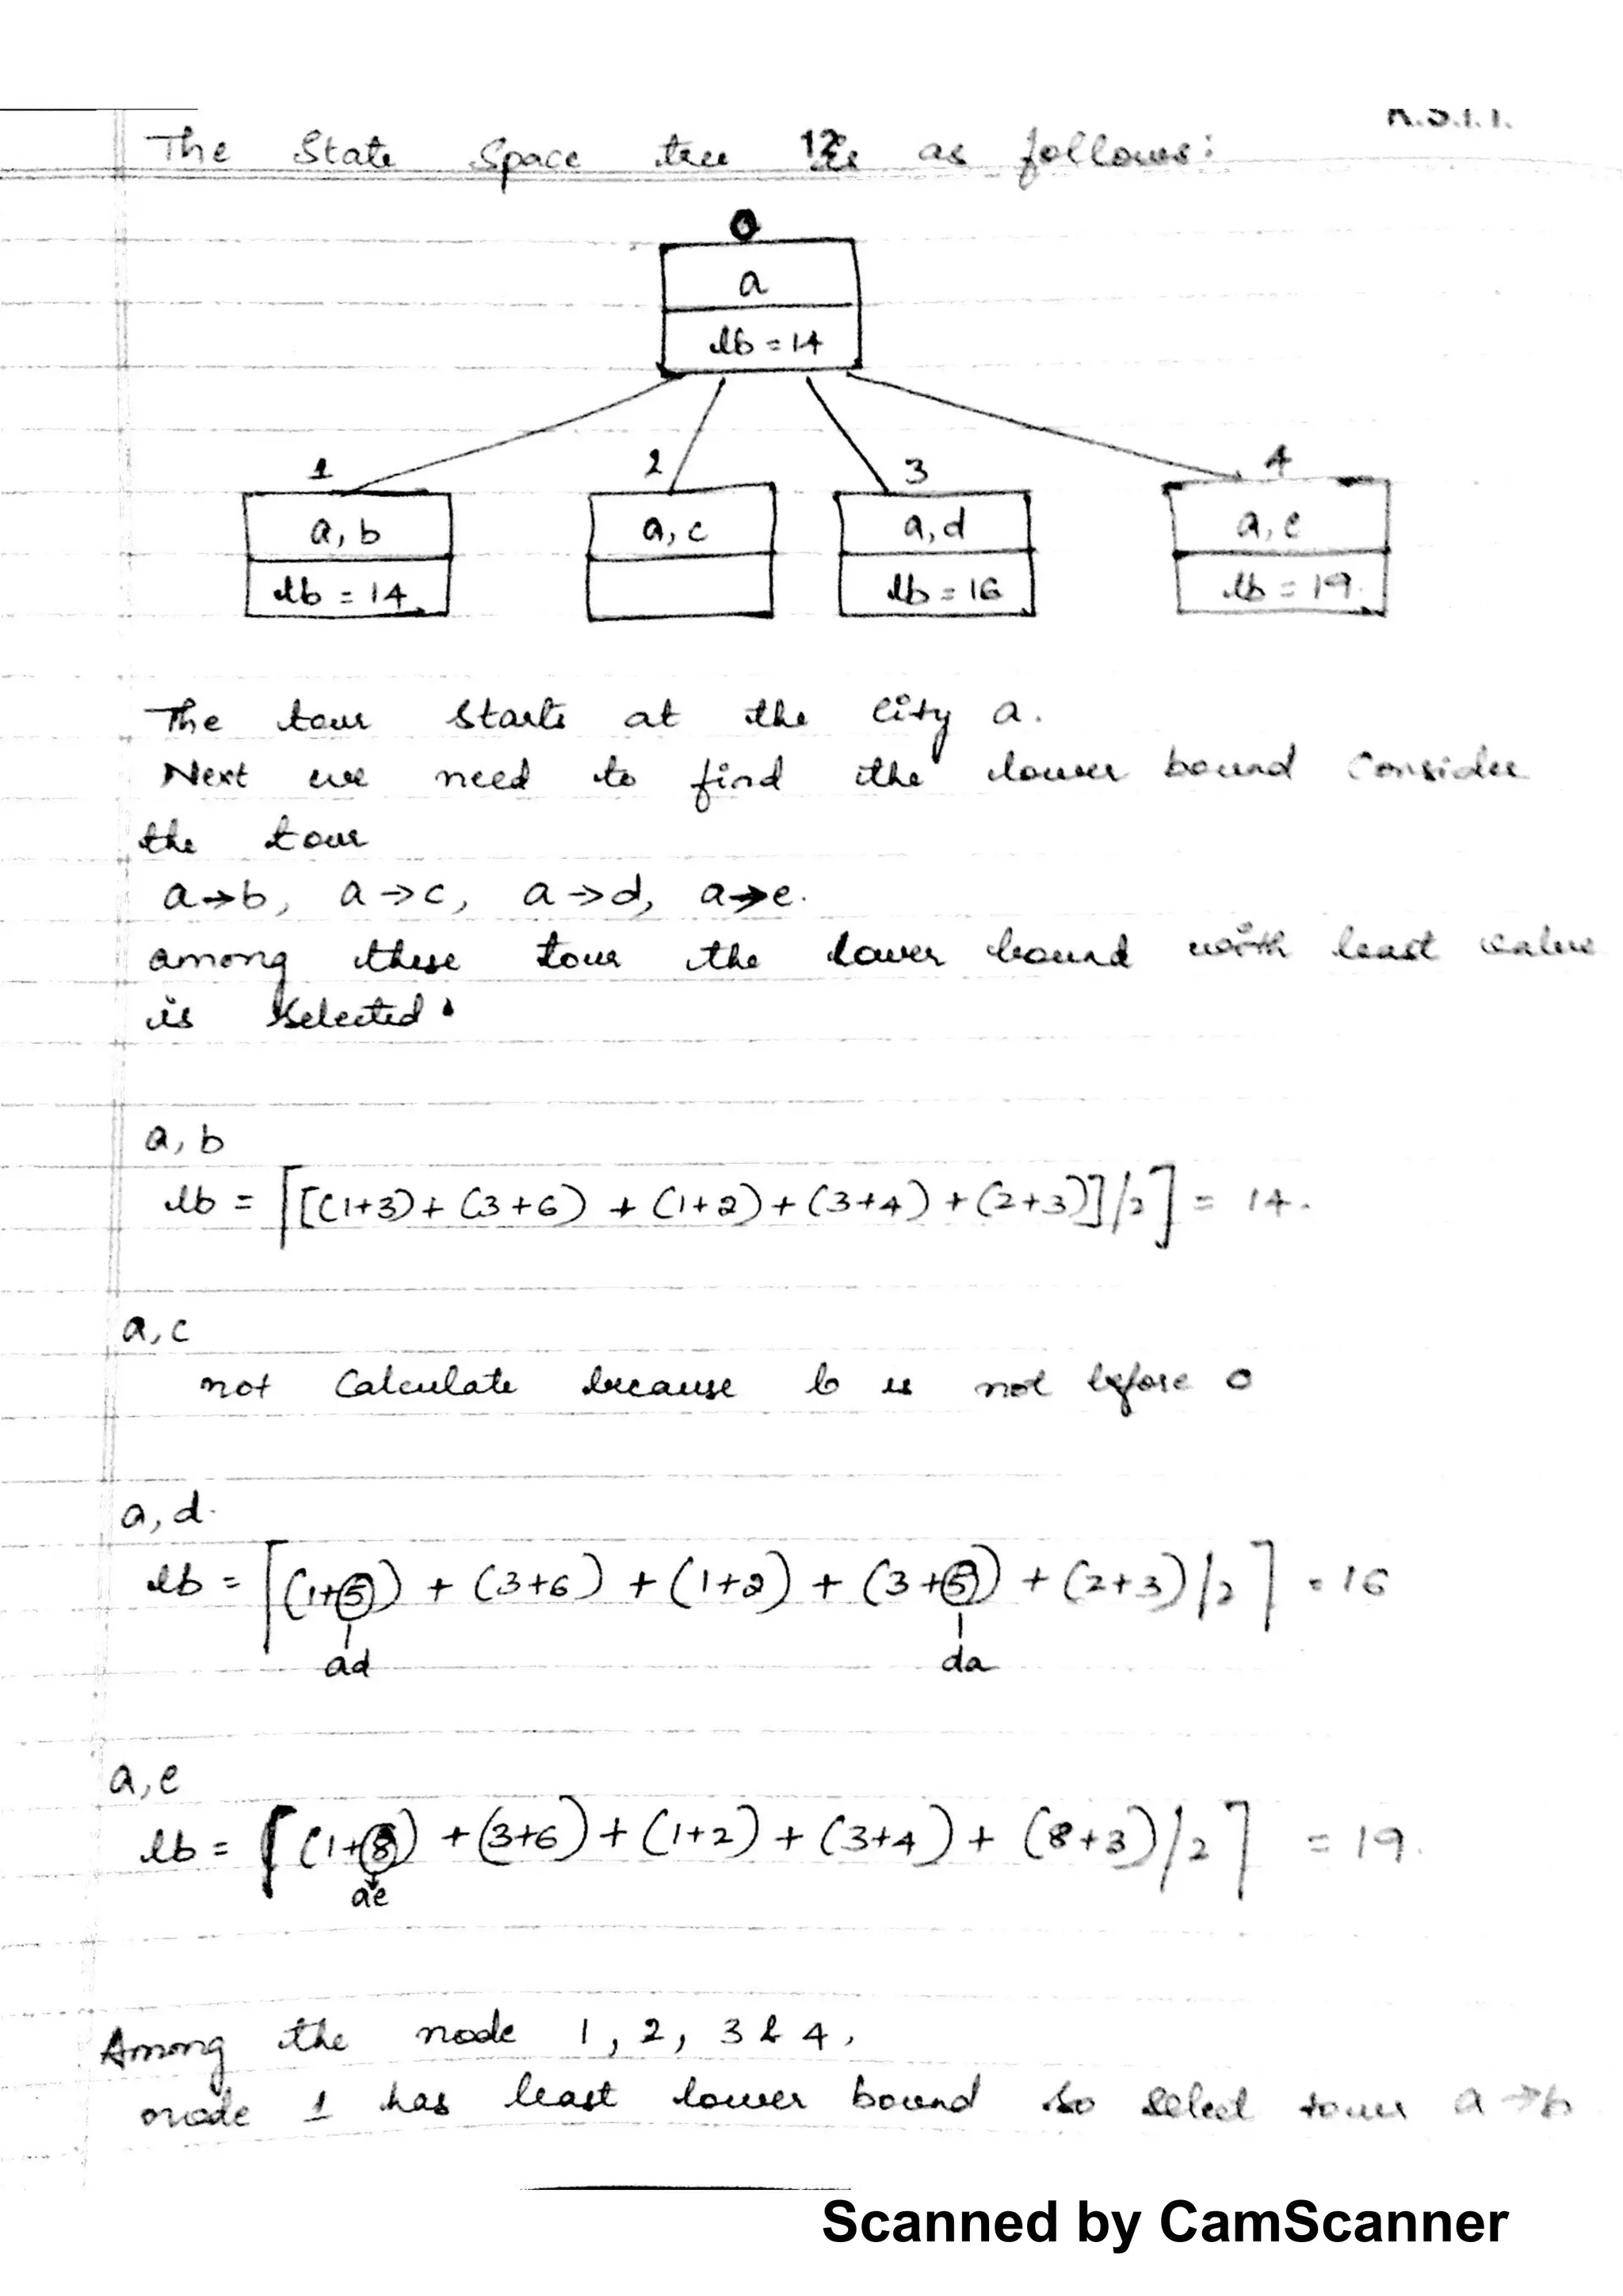 The State Space tree is as follows:
0
a
lb = 14
1 2 3 4
a, b a, c a, d a, e
lb = 14 lb = 16 lb = 19.
The tour starts at the city a.
Next we need to find the lower bound consider
the tour
a→b, a→c, a→d, a→e.
among these tour the lower bound with least value
is selected.
a, b
lb = ⌈[(1+3)+(3+6) + (1+2)+(3+4)+(2+3)]/2⌉ = 14.
a, c
not calculate because b is not before
a, d.
lb = ⌈(1+5) + (3+6) + (1+2) + (3+5) + (2+3)/2⌉ = 16
ad da
a, e
lb = ⌈(1+8) + (3+6) + (1+2) + (3+4) + (8+3)/2⌉ = 19.
ae
Among the node 1, 2, 3 & 4,
node 1 has least lower bound so select tour a→b
Scanned by CamScanner